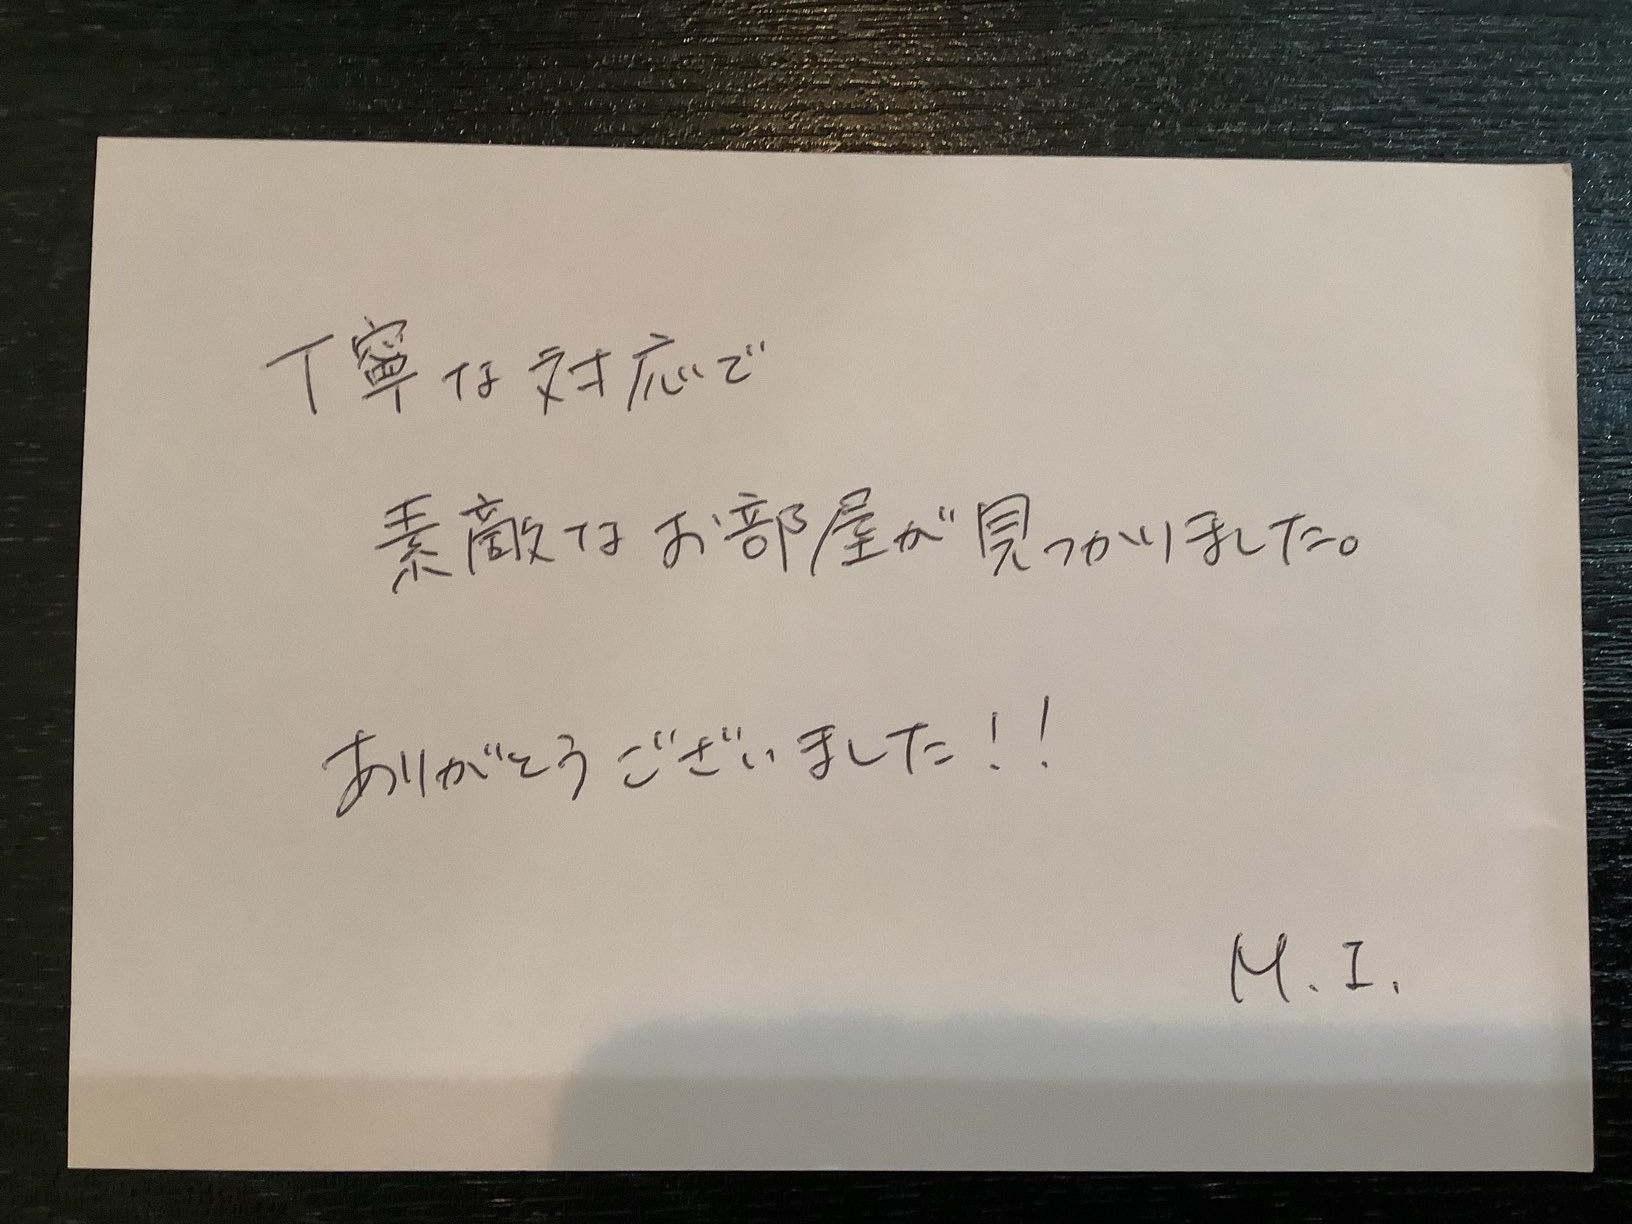 丁寧な対応で
素敵なお部屋が見つかりました。
ありがとうございました!!
M.I.